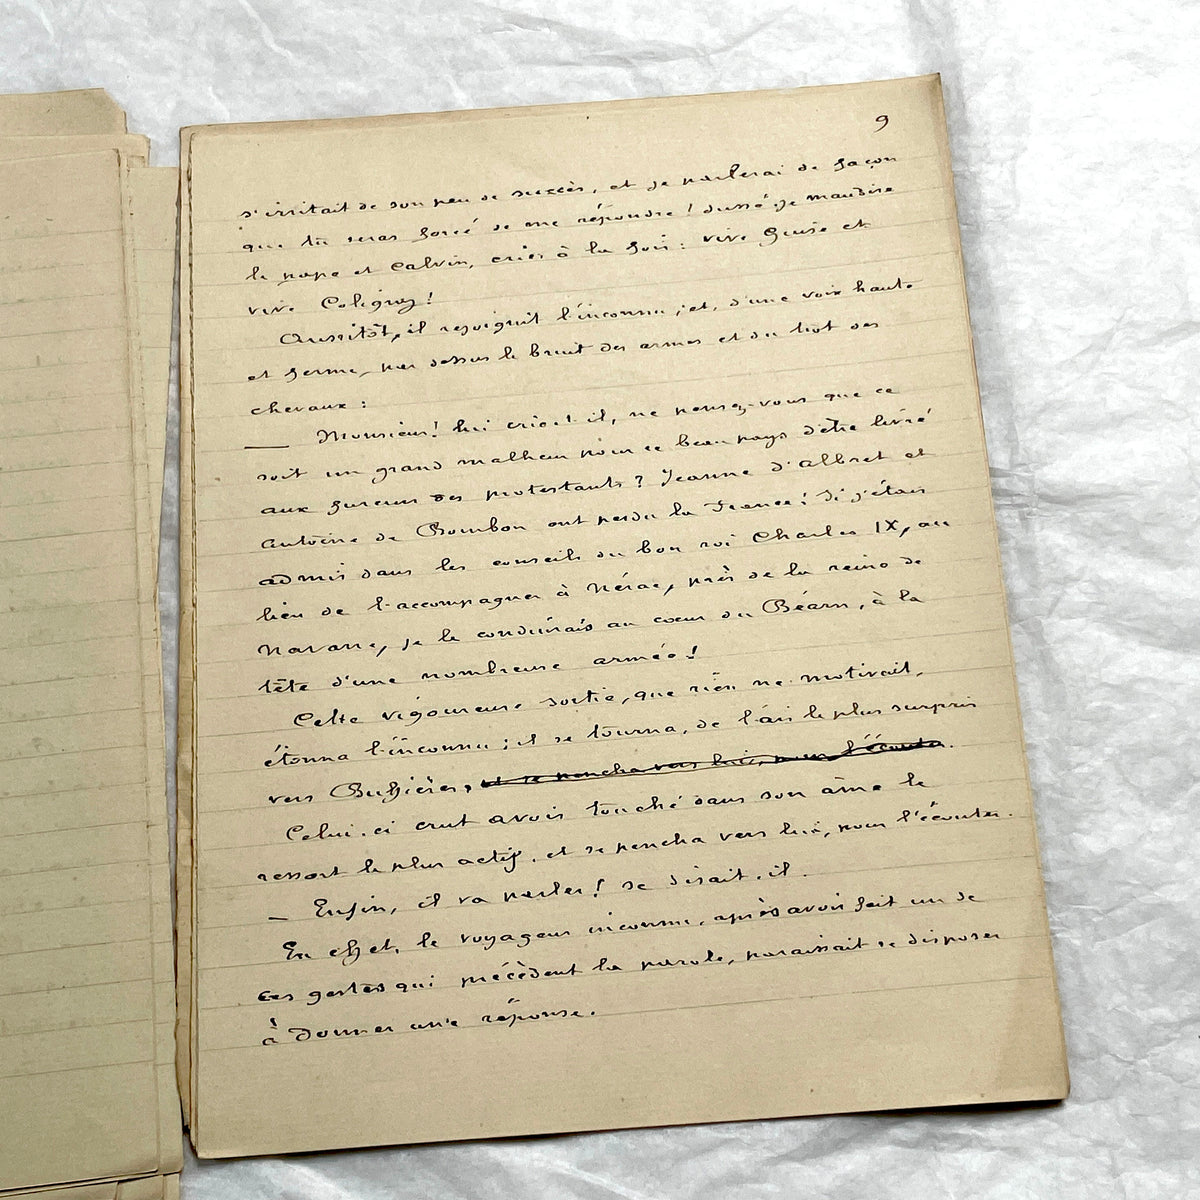 9
s'irritait de son peu de succès, et je parlerai de façon
que tu seras forcé de me répondre ! dussé-je maudire
le pape et Calvin, crier à la fois : vive Guise et
vive Coligny !
Aussitôt, il rejoignit l'inconnu ; et, d'une voix haute
et ferme, par dessus le bruit des armes et du trot des
chevaux :
— Monsieur ! lui cria-t-il, ne pensez-vous que ce
soit un grand malheur pour ce beau pays d'être livré
aux fureurs des protestants ? Jeanne d'Albret et
Antoine de Bourbon ont perdu la France ! Si j'étais
admis dans les conseils du bon roi Charles IX, au
lieu de l'accompagner à Nérac, près de la reine de
Navarre, je le conduirais au cœur du Béarn, à la
tête d'une nombreuse armée !
Cette vigoureuse sortie, que rien ne motivait,
étonna l'inconnu ; il se tourna, de l'air le plus surpris
vers Buffières, et se pencha vers lui, pour l'écouter.
Celui-ci crut avoir touché dans son âme le
ressort le plus actif, et se pencha vers lui, pour l'écouter.
— Enfin, il va parler ! se disait-il.
En effet, le voyageur inconnu, après avoir fait un de
ces gestes qui précèdent la parole, paraissait se disposer
à donner une réponse.